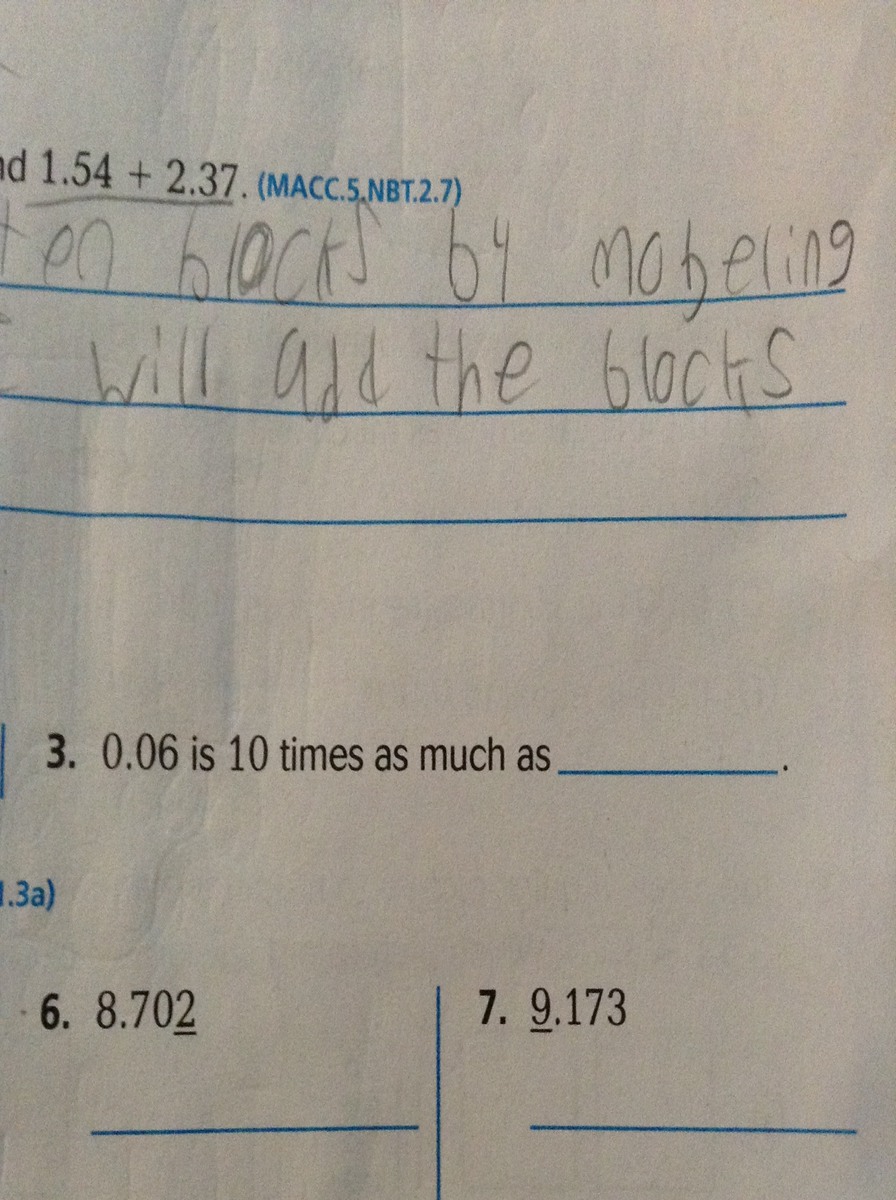 nd 1.54 + 2.37. (MACC.5.NBT.2.7)
ten blocks by mobeling
will add the blocks
3. 0.06 is 10 times as much as ________.
1.3a)
6. 8.702
7. 9.173